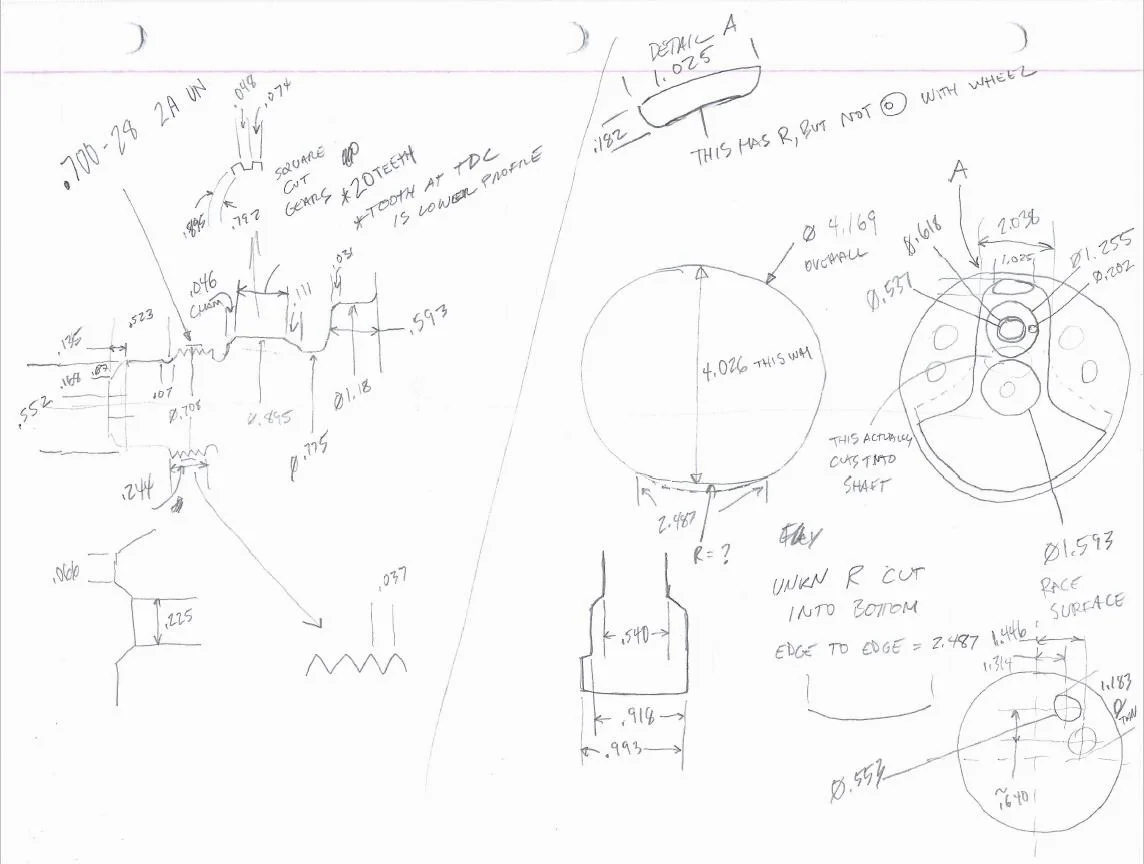 .700-28 2A UN
.048
.074
SQUARE
CUT
GEARS
*20 TEETH
*TOOTH AT TDC
IS LOWER PROFILE
.895
.792
.046
CHAM
.111
.031
.593
.523
.135
.168
.07
.552
Ø.708
Ø.895
Ø.775
Ø1.18
.244
.066
.225
.037
DETAIL A
1.025
.182
THIS HAS R, BUT NOT ◎ WITH WHEEL
Ø 4.169
OVERALL
4.026 THIS WAY
2.487
R=?
A
2.038
1.025
Ø.618
Ø.537
Ø1.255
Ø.202
THIS ACTUALLY
CUTS INTO
SHAFT
Ø1.593
RACE
SURFACE
UNKN R CUT
INTO BOTTOM
EDGE TO EDGE = 2.487
.540
.918
.993
1.446
1.314
1.183
Ø.553
~.640